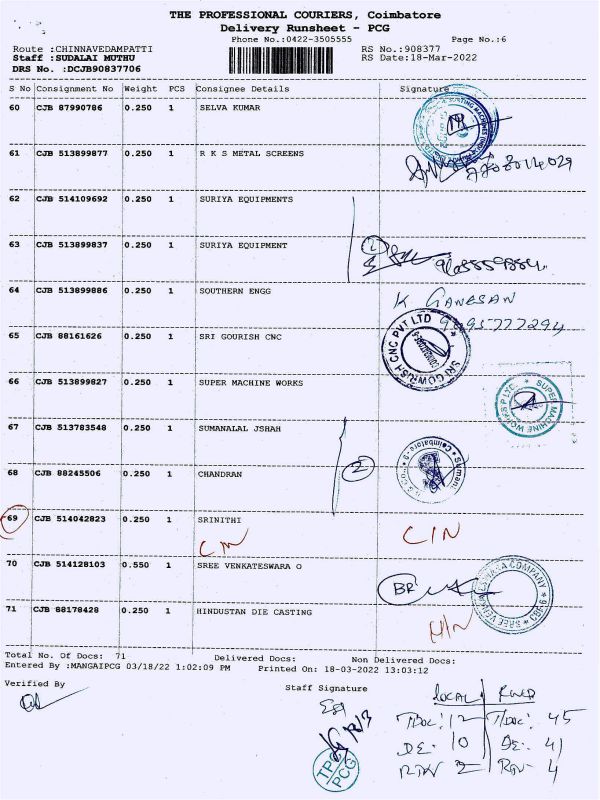 THE PROFESSIONAL COURIERS, Coimbatore
Delivery Runsheet - PCG
Phone No.:0422-3505555
Page No.:6
Route :CHINNAVEDAMPATTI
RS No.:908377
Staff :SUDALAI MUTHU
RS Date:18-Mar-2022
DRS No. :DCJB90837706
S No Consignment No Weight PCS Consignee Details Signature
60 CJB 87990786 0.250 1 SELVA KUMAR
61 CJB 513899877 0.250 1 R K S METAL SCREENS
62 CJB 514109692 0.250 1 SURIYA EQUIPMENTS
63 CJB 513899837 0.250 1 SURIYA EQUIPMENT
2
64 CJB 513899886 0.250 1 SOUTHERN ENGG
K GANESAN
65 CJB 88161626 0.250 1 SRI GOURISH CNC
SRI GOWRISH CNC PVT LTD
66 CJB 513899827 0.250 1 SUPER MACHINE WORKS
SUPER MACHINE WORKS P LTD.
67 CJB 513783548 0.250 1 SUMANALAL JSHAH
2
68 CJB 88245506 0.250 1 CHANDRAN
69 CJB 514042823 0.250 1 SRINITHI
C/N
70 CJB 514128103 0.550 1 SREE VENKATESWARA O
BR
71 CJB 88178428 0.250 1 HINDUSTAN DIE CASTING
Total No. Of Docs: 71 Delivered Docs: Non Delivered Docs:
Entered By :MANGAIPCG 03/18/22 1:02:09 PM Printed On: 18-03-2022 13:03:12
Verified By
Staff Signature
LOCAL
TDOC: 12 TDOC: 45
DE: 10 DE: 41
RTN 2 RTN 4
TPC
PCG